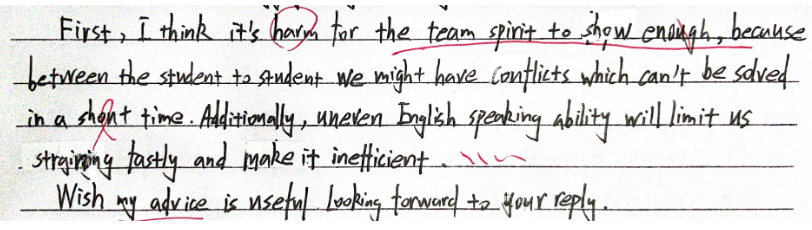 First, I think it's harm for the team spirit to show enough, because
between the student to student we might have conflicts which can't be solved
in a short time. Additionally, uneven English speaking ability will limit us
straining fastly and make it inefficient.
Wish my advice is useful. Looking forward to your reply.